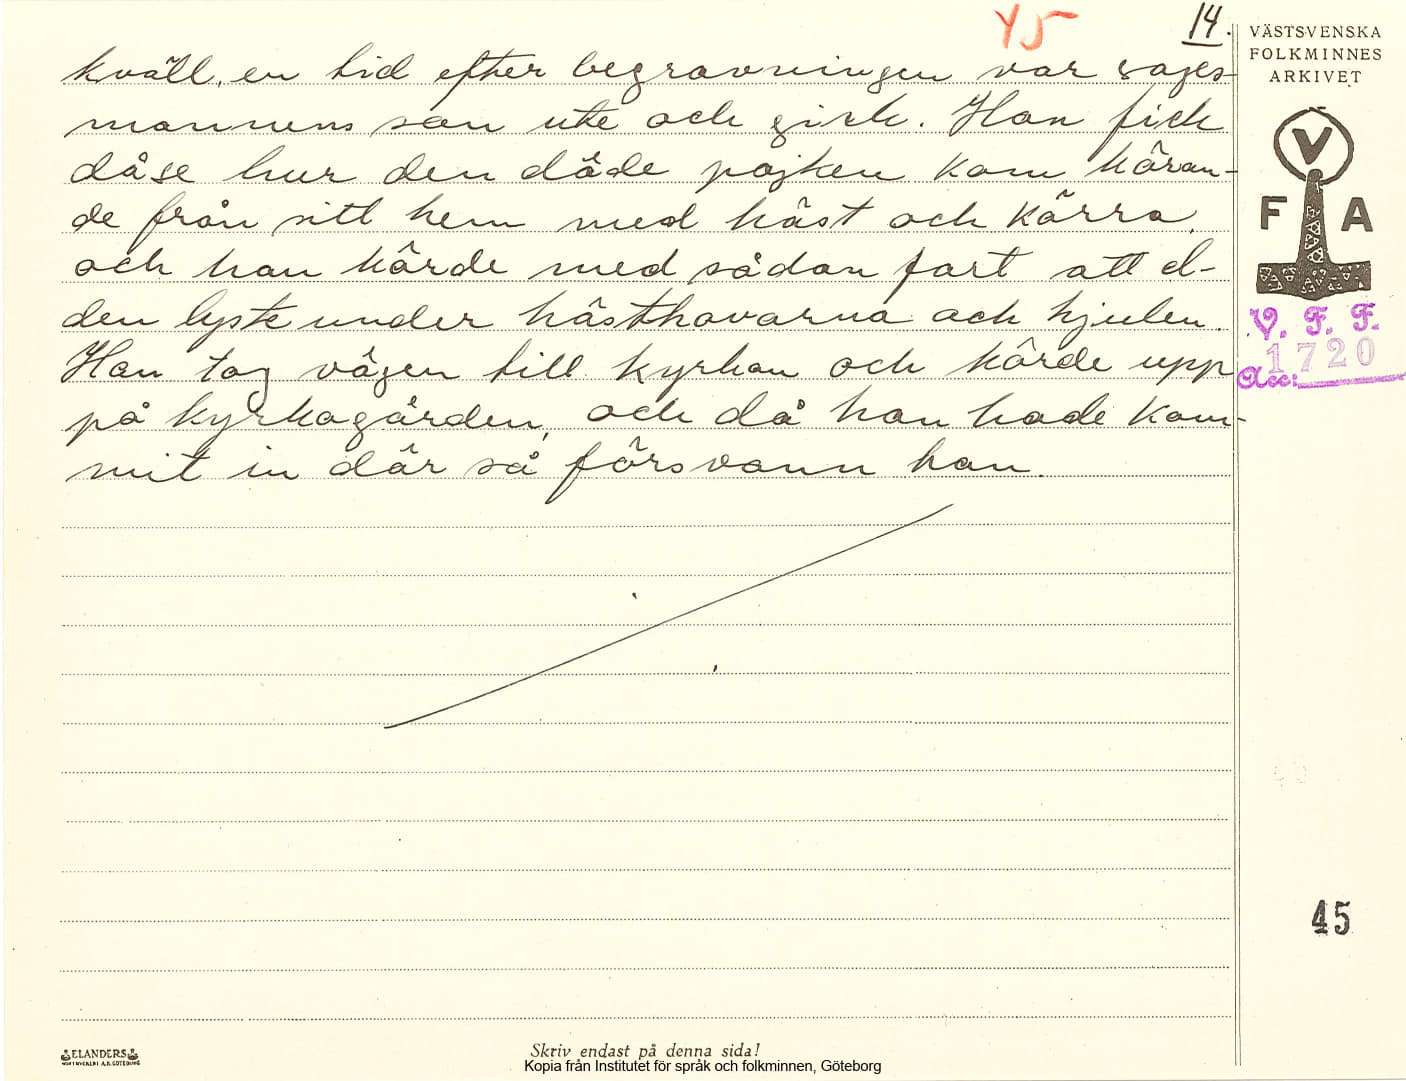 45
14.
kväll, en tid efter begravningen var sages-
mannens son ute och gick. Han fick
då se hur den döde pojken kom köran-
de från sitt hem med häst och kärra,
och han körde med sådan fart att el-
den lyste under hästhovarna och hjulen.
Han tog vägen till kyrkan och körde upp
på kyrkogården, och då han hade kom-
mit in där så försvann han.
VÄSTSVENSKA
FOLKMINNES
ARKIVET
V
F A
V. F. F.
Acc: 1720
45
ELANDERS
Skriv endast på denna sida!
Kopia från Institutet för språk och folkminnen, Göteborg